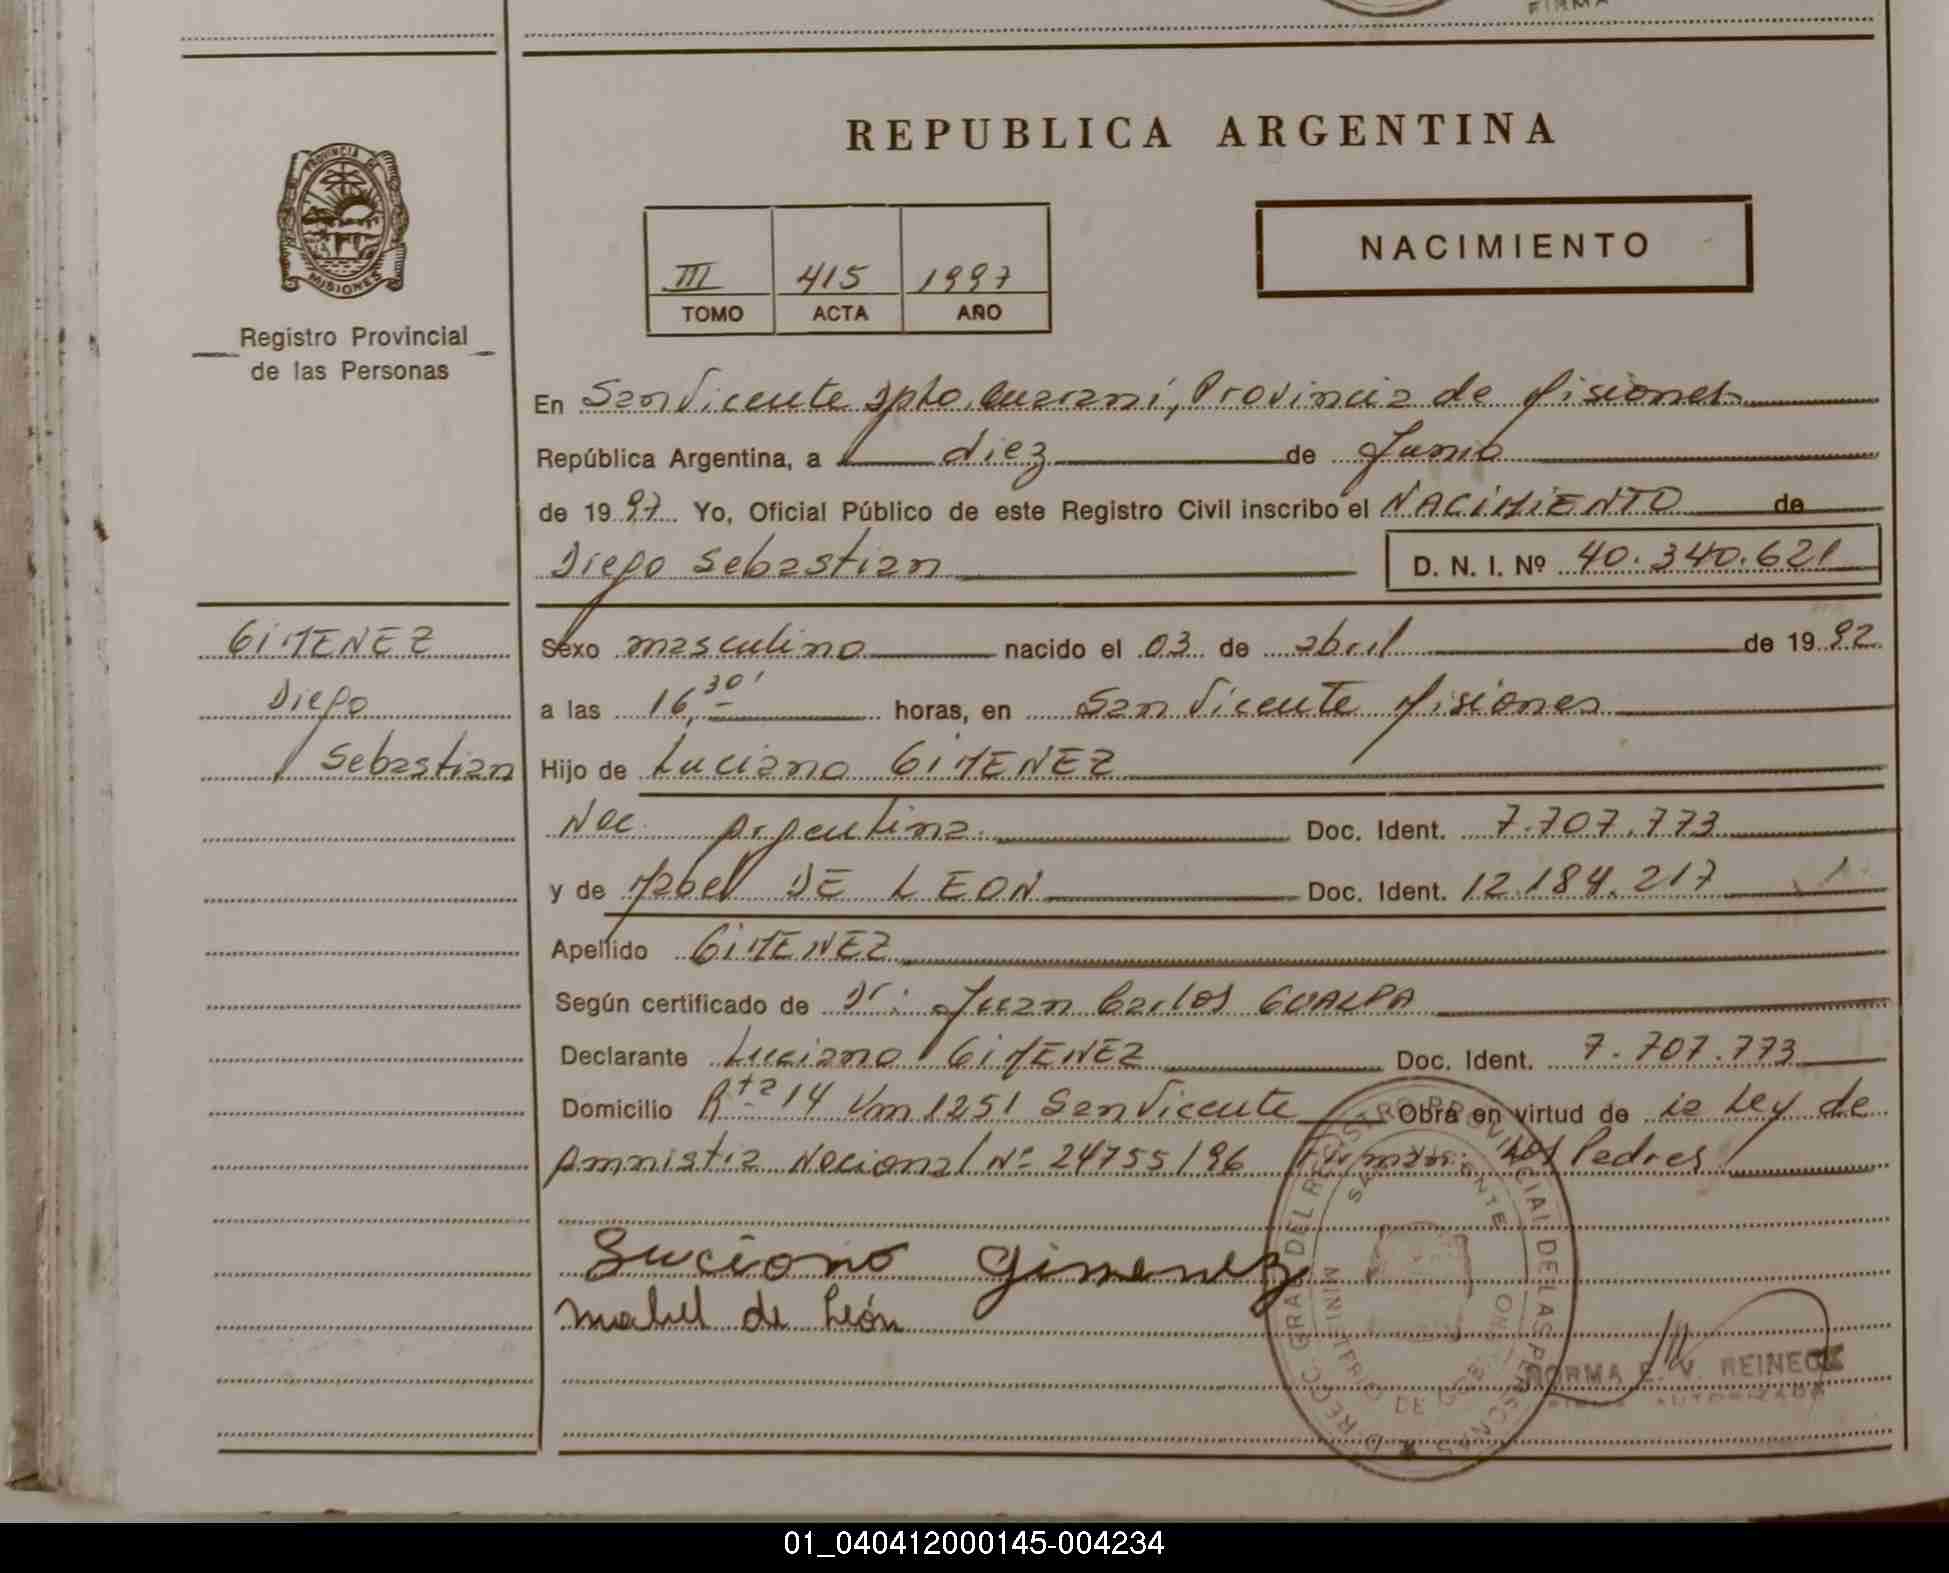 FIRMA
REPUBLICA ARGENTINA
PROVINCIA DE
MISIONES
Registro Provincial
de las Personas
III 415 1997
TOMO ACTA AÑO
NACIMIENTO
En San Vicente Dpto. Guaraní, Provincia de Misiones
República Argentina, a diez de Junio
de 1997 Yo, Oficial Público de este Registro Civil inscribo el NACIMIENTO de
Diego Sebastian D. N. I. Nº 40.340.621
GIMENEZ
Diego
Sebastian
Sexo masculino nacido el 03 de abril de 1992
a las 16,30' horas, en San Vicente Misiones
Hijo de Luciano GIMENEZ
Nac. Argentina. Doc. Ident. 7.707.773
y de Mabel DE LEON Doc. Ident. 12.184.217
Apellido GIMENEZ
Según certificado de Dr. Juan Carlos GUALPA
Declarante Luciano GIMENEZ Doc. Ident. 7.707.773
Domicilio Rta 14 Km 1251 San Vicente Obra en virtud de la Ley de
Amnistia Nacional Nº 24755/96 Firman: los Padres
Luciano Gimenez
Mabel de León
DIRECC. GRAL DEL REGISTRO PROVINCIAL DE LAS PERSONAS
SAN VICENTE
MINISTERIO DE GOBIERNO
NORMA E. V. REINECK
FIRMA AUTORIZADA
01_040412000145-004234